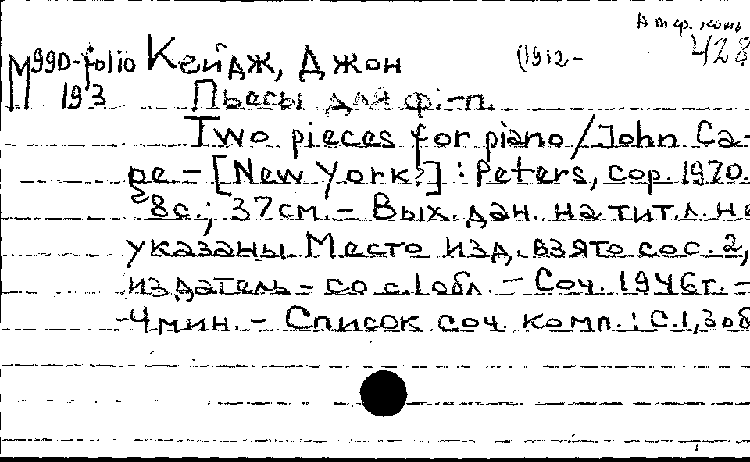 Амер. комп.
428
М990-folio Кейдж, Джон (1912-
193 Пьесы для ф.-п.
Two pieces for piano / John Ca-
ge. - [New York?] : Peters, cop. 1970. -
8с.; 37см. - Вых. дан. на тит. л. не
указаны. Место изд. взято со с. 2,
издатель - со с. 1 обл. - Соч. 1946г. -
-4мин. - Список соч. комп.: с. 1, 3 об